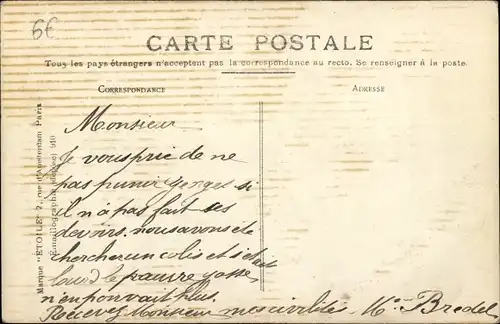 6€
CARTE POSTALE
Tous les pays étrangers n'acceptent pas la correspondance au recto. Se renseigner à la poste.
CORRESPONDANCE
ADRESSE
Marque "ÉTOILE" 7, rue d'Amsterdam Paris
Monsieur
Je vous prie de ne
pas punir si
il n'a pas fait ses
devoirs. nous avons été
chercher un colis et s'etait
lourd le pauvre gosse
n'en pouvait plus.
Recevez Monsieur mes civilités. Bredel